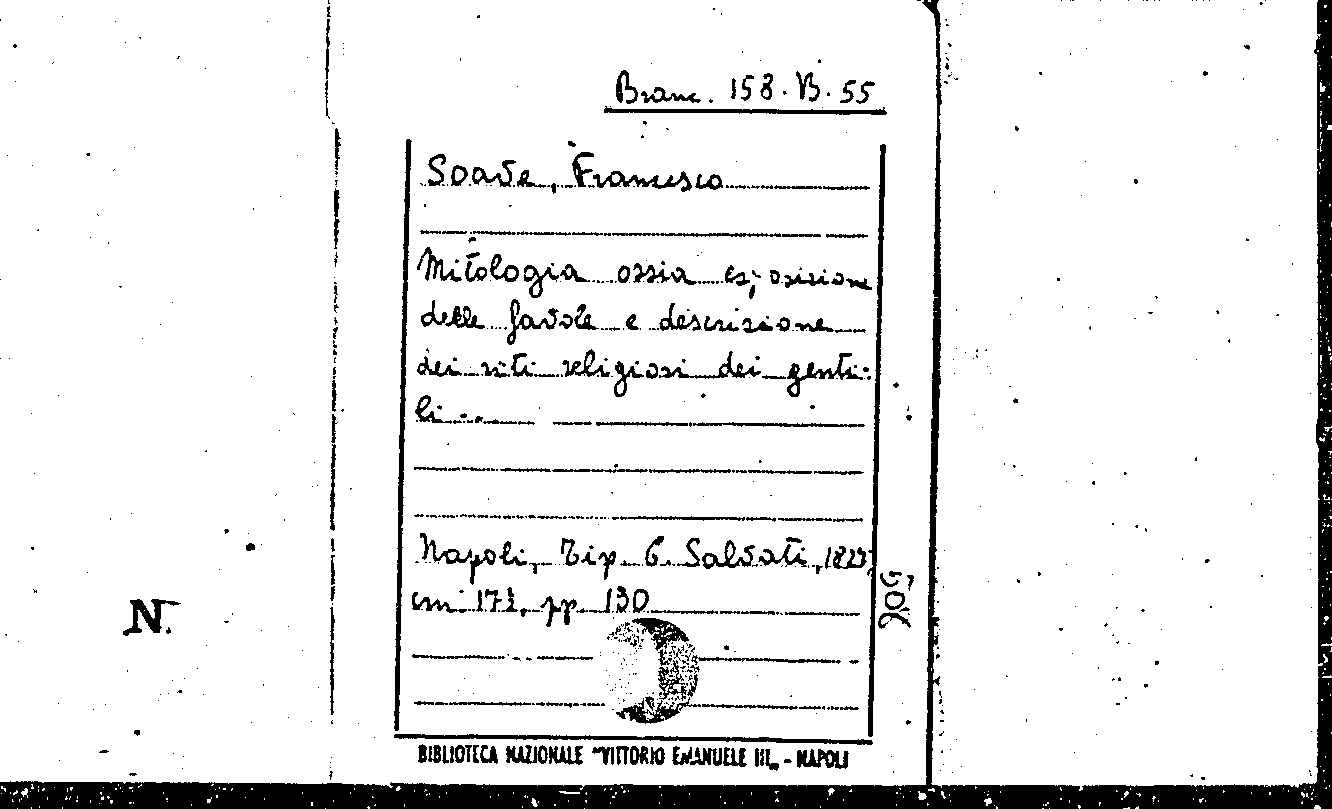 Branc. 158. B. 55
Soave, Francesco
Mitologia ossia esposizione
delle favole e descrizione
dei riti religiosi dei genti-
li...
Napoli, Tip. G. Salvati,
cm 17½, pp. 130
N.
BIBLIOTECA NAZIONALE "VITTORIO EMANUELE III„ - NAPOLI